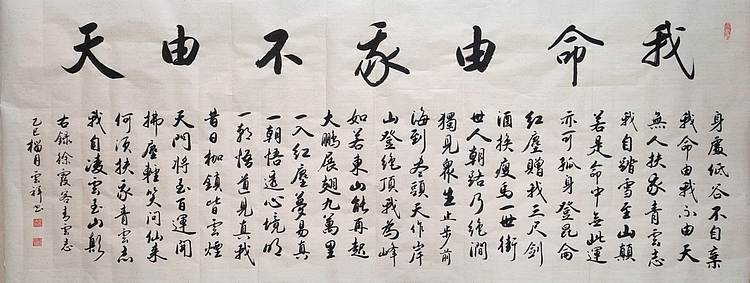 我命由我不由天
身處低谷不自棄
我命由我不由天
無人扶我青雲志
我自踏雪至山巔
若是命中無此運
亦可孤身登昆侖
紅塵贈我三尺劍
酒換瘦馬一世街
世人朝路乃絕澗
獨見眾生止步前
海到盡頭天作岸
山登絕頂我為峰
如若東山能再起
大鵬展翅九萬里
一入紅塵夢易真
一朝悟透心境明
一朝悟道見真我
昔日枷鎖皆雲煙
天門將至百運開
拂塵輕笑問仙來
何須扶我青雲志
我自凌雪至山巔
右錄徐霞客青雲志
乙巳榴月雲祥書